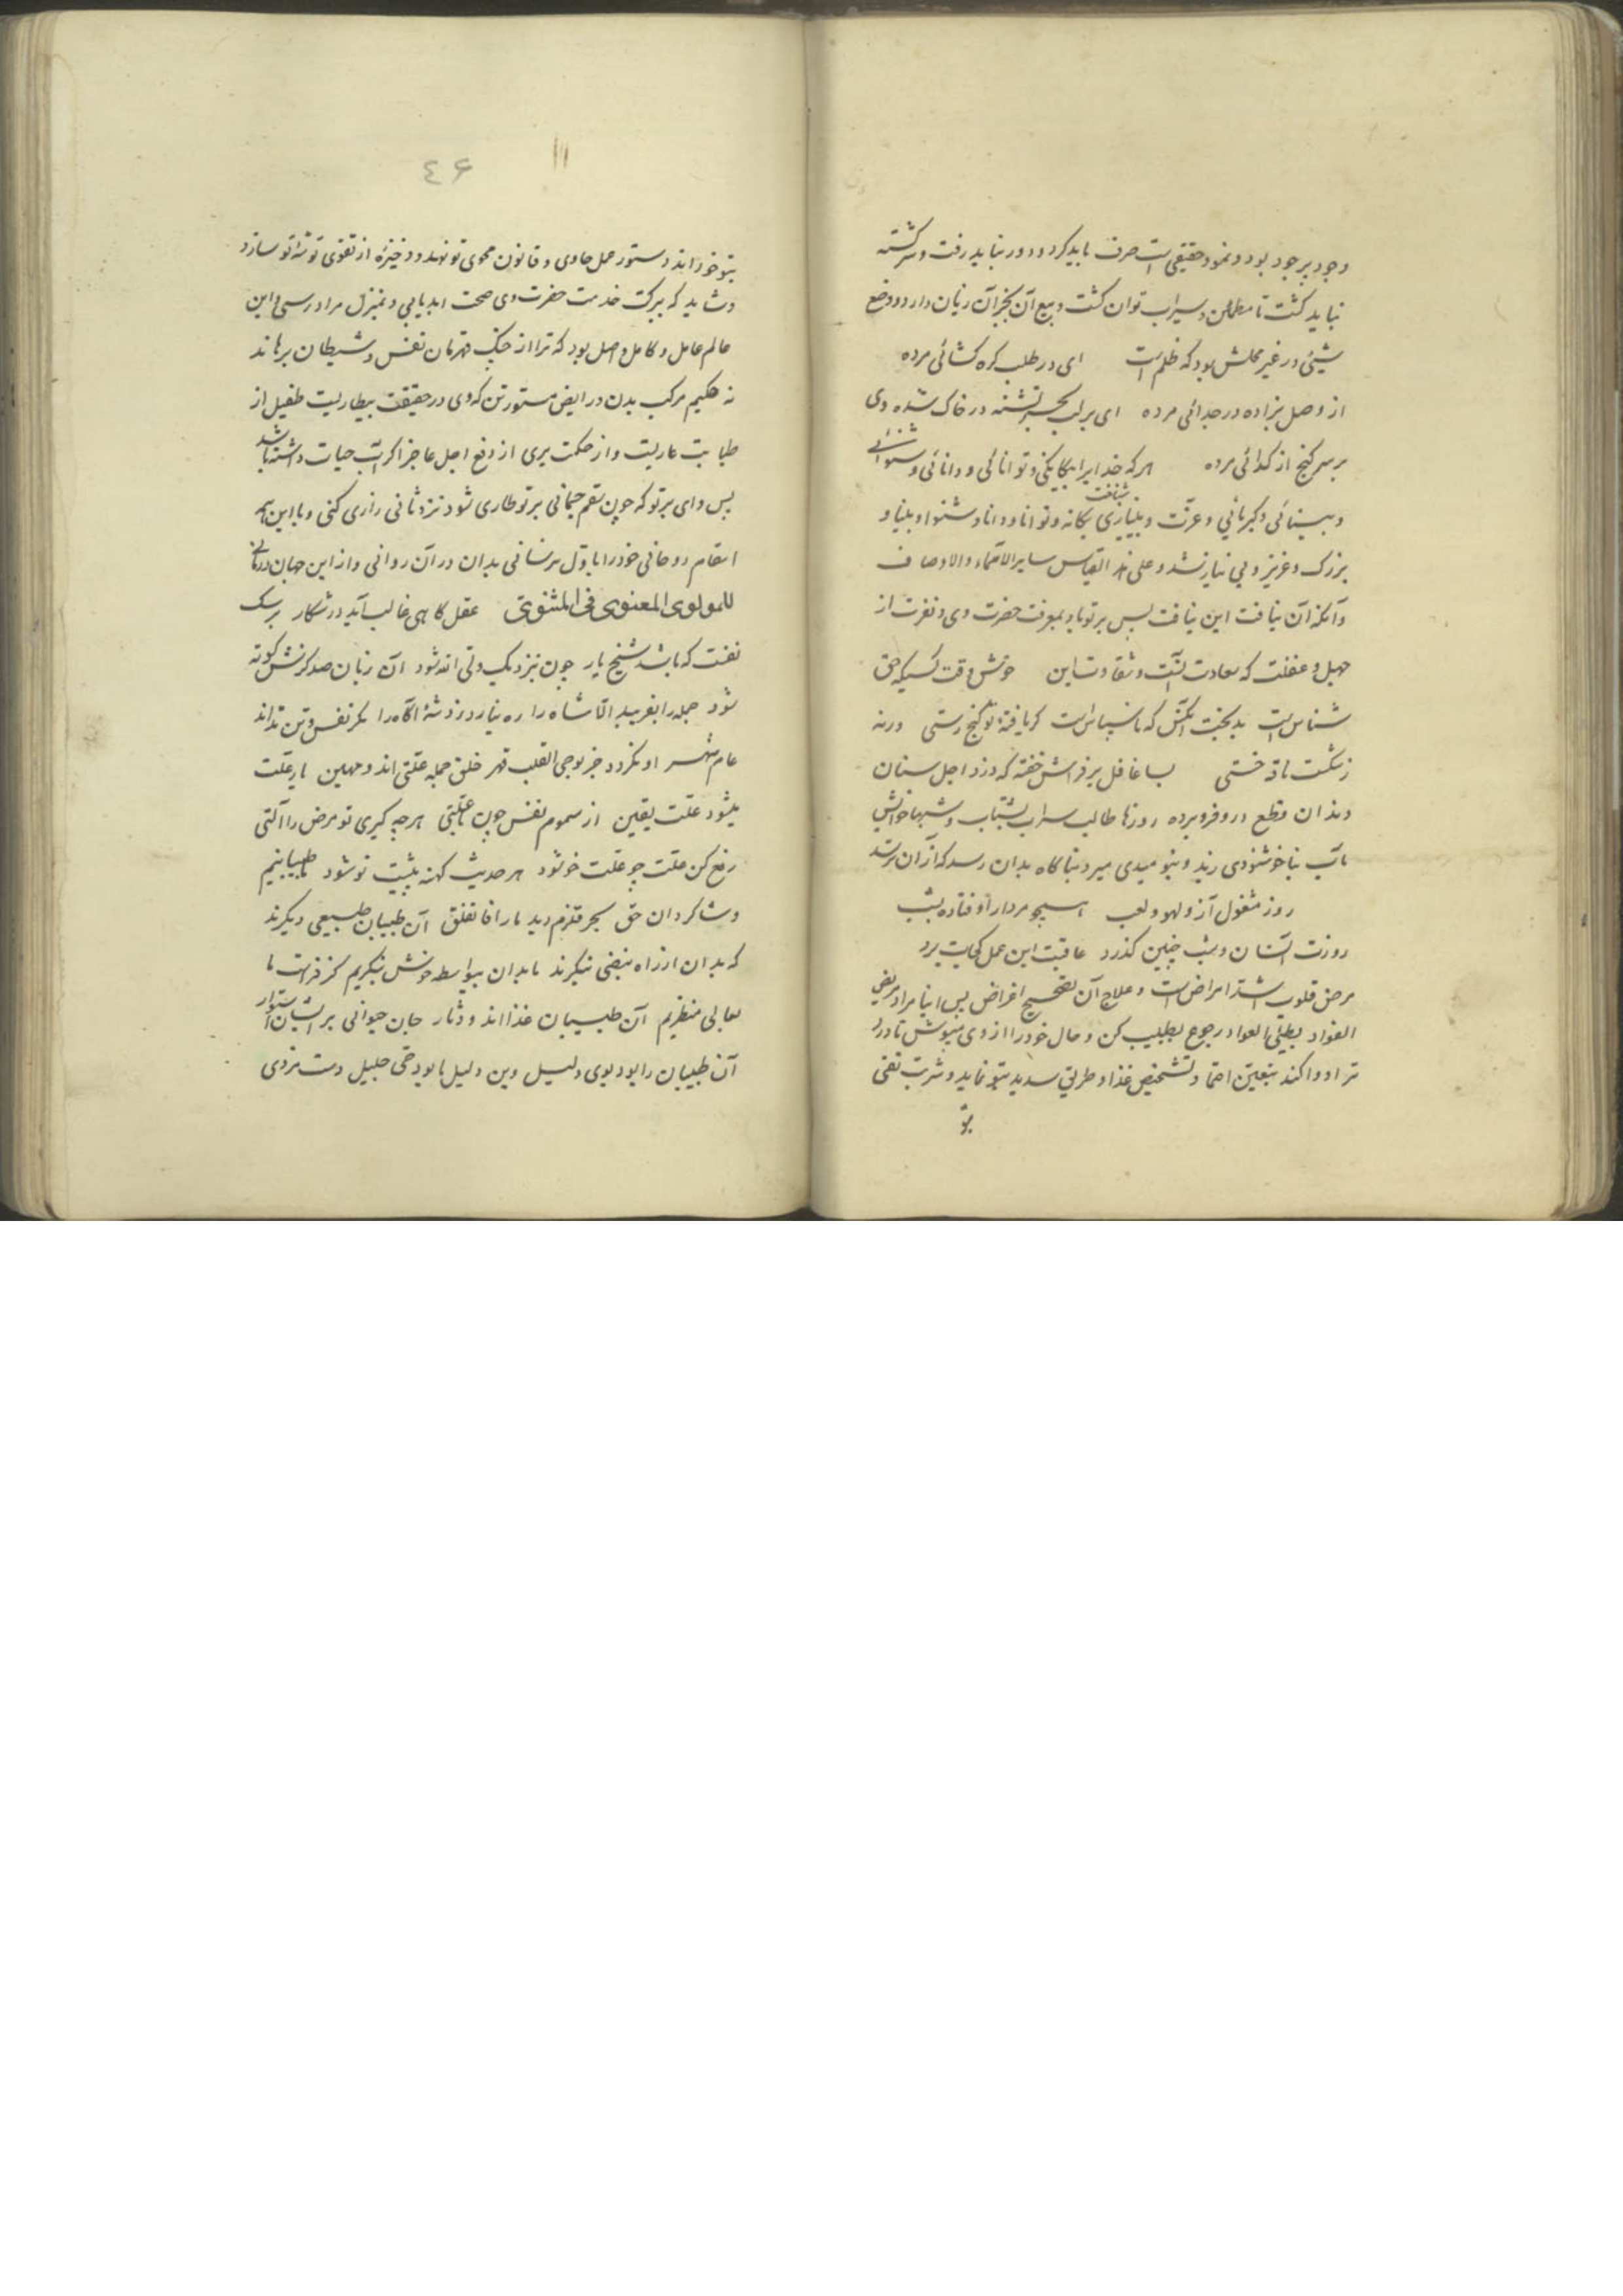 وجود پرجود بود و نمود حقیقی است صرف باید کرد و دور نباید رفت و سرکشته
نباید کشت تا مطمئن و سیراب توان کشت و بیع آن بجز آن زیان دارد و وضع
شیئی در غیر محلش بود که ظلم است ای در طلب کره کشائی مرده
از وصل بزاده در جدائی مرده ای بر لب بحر تشنه در خاک شده وی
بر سر کنج از کدائی مرده هر که خدایرا بیکانکی و توانائی و دانائی و شنوائی
و بینائی و کبریائی و عزت و بی‌نیازی شناخت یکانه و توانا و دانا و شنوا و بینا و
بزرک و عزیز و بی نیاز شد و علی هذا القیاس سایر الاسماء والاوصاف
و آنکه آن نیافت این نیافت پس بر تو باد بمعرفت حضرت وی و نفرت از
جهل و غفلت که سعادت آنست و شقاوت این خوش وقت کسیکه حق
شناس است بدبخت آنکس که ناسپاس است کر یافتهٔ تو کنج رستی ورنه
زشکست ناقه خستی بسا غافل بر فراش خفته که دزد اجل سنان
دندان قطع درو فرو برده روزها طالب سراب بشتاب و شبها خوابش
تاب بناخوشنودی زید و بنومیدی میرد ناکاه بدان رسد که از آن ترسد
روز مشغول آز و لهو و لعب همچو مردار اوفتاده بشب
روزت آنسان و شب چنین کذرد عاقبت این عمل کجات برد
مرض قلوب اشد امراض است و علاج آن تصحیح اغراض پس ایا مراد مریض
الفؤاد بطیئی العواد رجوع بطبیب کن و حال خود را از وی مپوش تا درد
ترا دوا کند بتعیین احتما و تشخیص غذا و طریق سدید بتو نماید و شربت تقی
بتو
٤۶
بتو خوراند دستور عمل حاوی و قانون محوی تو نهد و ذخیرهٔ از تقوی توشهٔ تو سازد
و شاید که ببرکت خدمت حضرت وی صحت ابد یابی و بمنزل مراد رسی این
عالم عامل و کامل واصل بود که ترا از چنک قهرمان نفس و شیطان برهاند
نه حکیم مرکب بدن در ایض ستور تن که وی در حقیقت بیطاریست طفیل از
طبابت عاریست و از حکمت بری از دفع اجل عاجز اکر آب حیات داشته باشد
پس وای بر تو که چون سقم جسمانی بر تو طاری شود نزد ثانی زاری کنی و با این همه
اسقام روحانی خود را باول نرسانی بدان در آن روانی و از این جهان درمانی
للمولوی المعنوی فی المثنوی عقل کاهی غالب آید در شکار بر سک
نفست که باشد شیخ یار چون بنزدیک ولی الله شود آن زبان صد کزش کوته
شود جمله را بفریبد الا شاه را ره نیارد زد شه آکاه را مکر نفس و تن نداند
عام شهر او نکردد جز بوحی القلب قهر خلق جمله علتی اند و مهین یار علت
میشود علت یقین از سموم نفس چون با علتی هرچه کیری تو مرض را آلتی
رفع کن علت چو علت خو شود هر حدیث کهنه پیشت نو شود ما طبیبانیم
و شاکردان حق بحر قلزم دید ما را فانفلق آن طبیبان طبیعی دیکرند
که بدان از راه نبضی بنکرند ما بدان بیواسطه خوش بنکریم کز فراست ما
بعالی منظریم آن طبیبان غذا اند و ثمار جان حیوانی بر ایشان استوار
آن طبیبان را بود بولی دلیل وین دلیل ما بود وحی جلیل دست مزدی